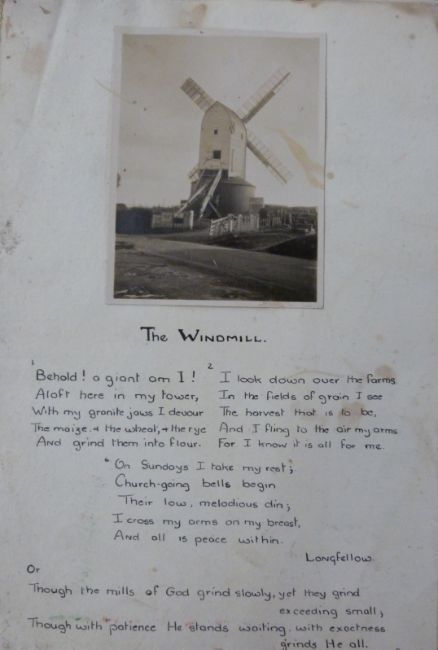 The WINDMILL.
1
Behold! a giant am I!
Aloft here in my tower,
With my granite jaws I devour
The maize, & the wheat, & the rye
And grind them into flour.
2
I look down over the farms
In the fields of grain I see
The harvest that is to be,
And I fling to the air my arms
For I know it is all for me.
6
On Sundays I take my rest;
Church-going bells begin
Their low, melodious din;
I cross my arms on my breast,
And all is peace within.
Longfellow.
Or
Though the mills of God grind slowly, yet they grind
exceeding small;
Though with patience He stands waiting, with exactness
grinds He all.